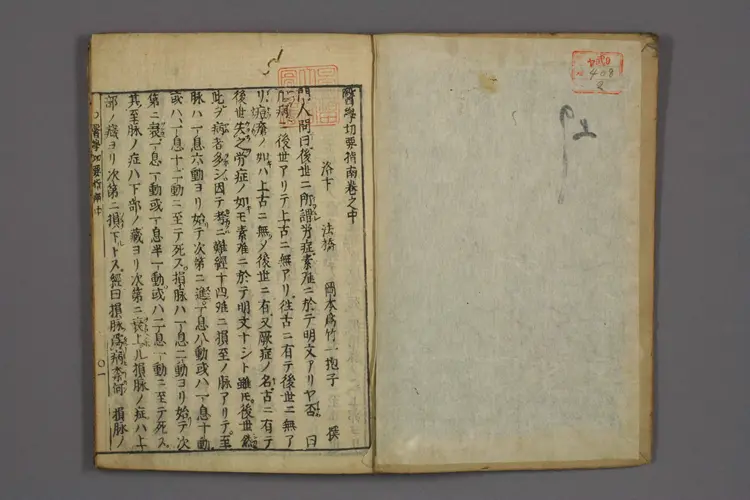 408
2
醫學切要指南巻之中
洛下 法橋 岡本爲竹一抱子 撰
門人問曰後世ニ所謂労症素難ニ於テ明文アリヤ否 曰
凡病ニ後世アリテ上古ニ無アリ往古ニ有テ後世ニ無ア
リ ノ如ハ上古ニ無メ後世ニ有又厥症ノ名古ニ有テ
後世失之労症ノ如モ素難ニ於テ明文ナシト雖モ後世
此ヲ病者多シ因テ考ニ難經十四難ニ損至ノ脉アリテ至
脉ハ一息六動ヨリ始テ次第ニ進テ一息八動或ハ一息十動
或ハ一息十二動ニ至テ死ス損脉ハ一息二動ヨリ始テ次
第ニ衰テ一息一動或一息半一動或ハ二息一動ニ至テ死ス
其至脉ノ症ハ下部ノ藏ヨリ次第ニ上ル損脉ノ症ハ上
部ノ藏ヨリ次第ニ損下トス經曰損脉爲病奈何 損脉ノ